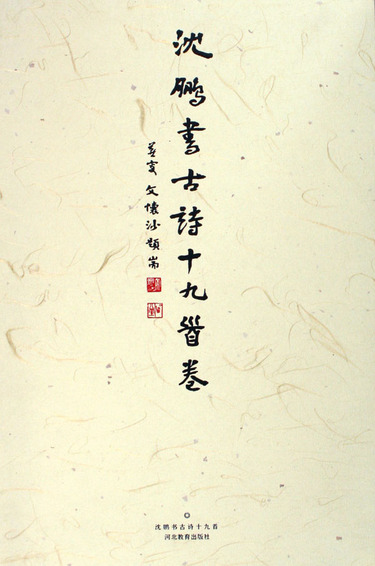 沈鹏书古诗十九首卷
文懷沙題耑
沈鹏书古诗十九首
河北教育出版社